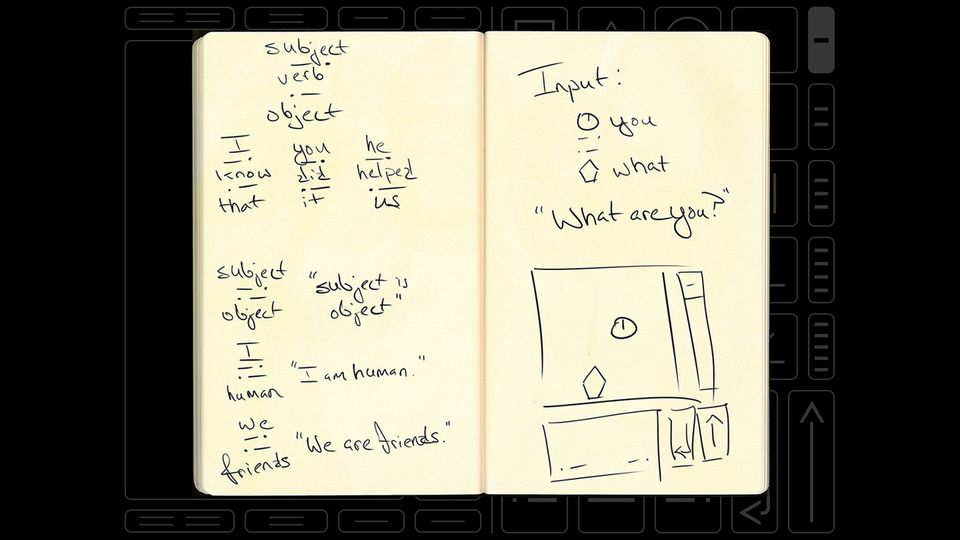 subject
verb
object
I you he
know did helped
that it us
subject
object
"subject is
object"
I
human
"I am human."
we
friends
"We are friends."
Input:
you
what
"What are you?"